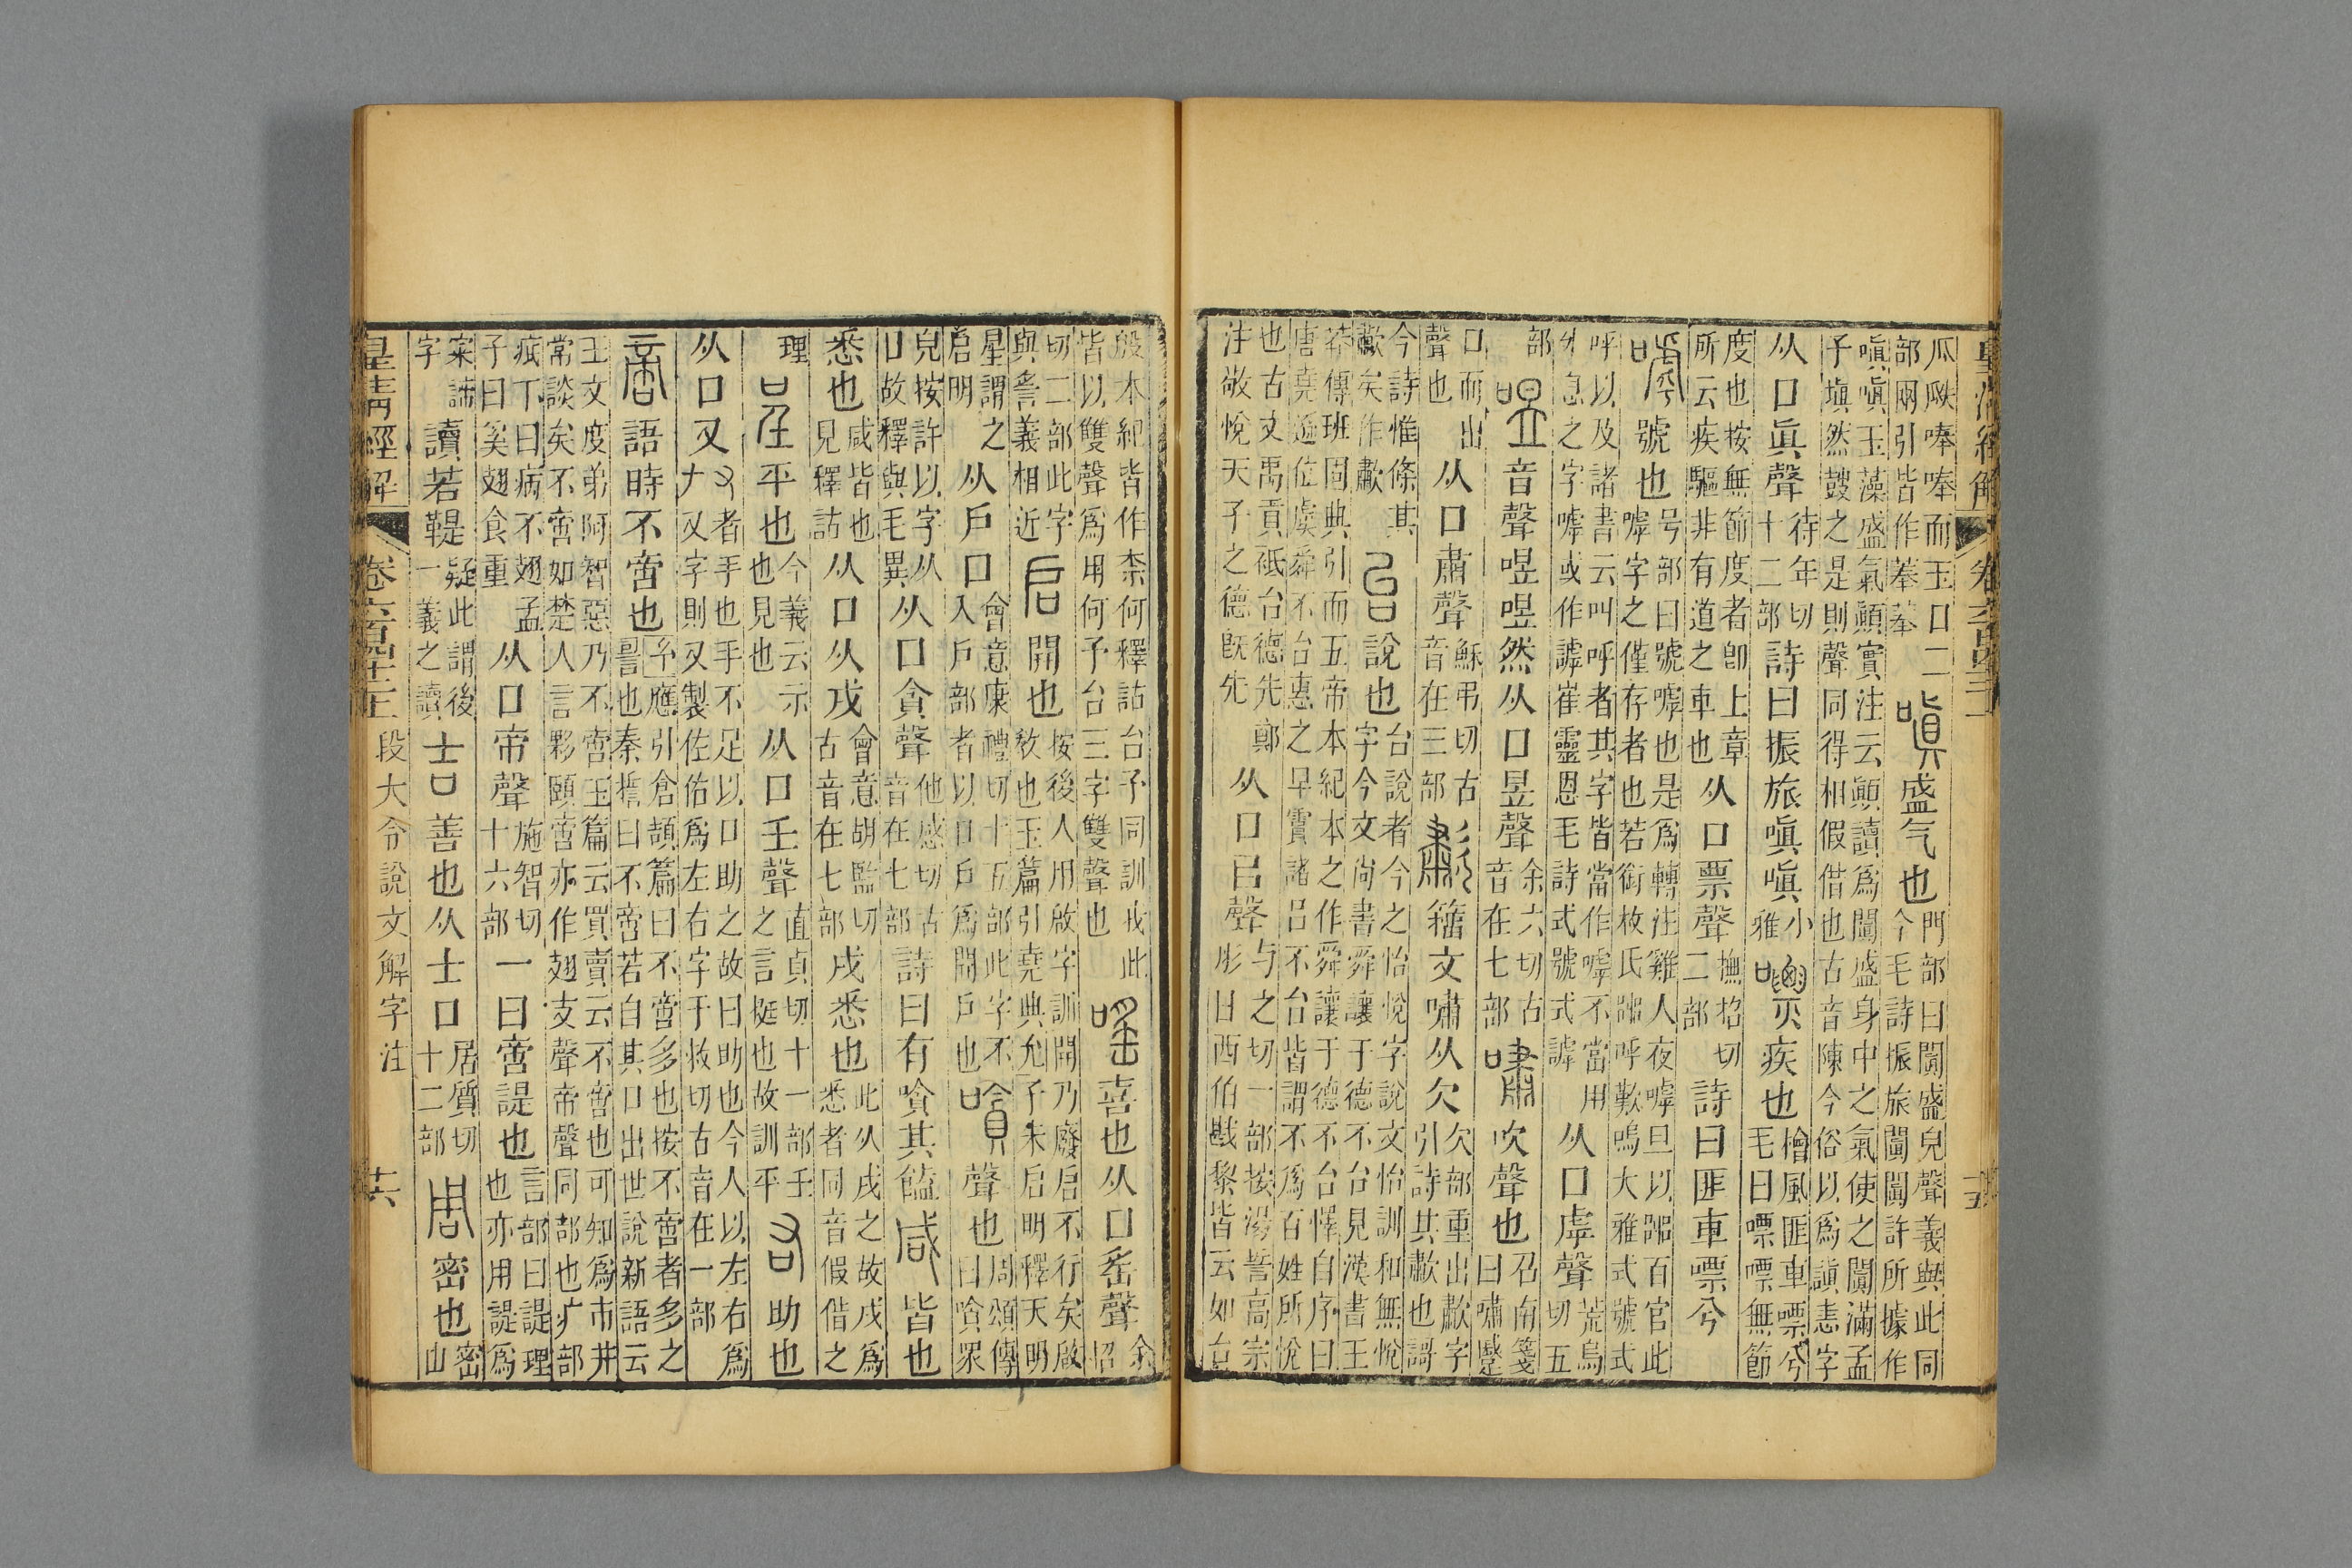 皇清經解 卷六百四十二 十五
瓜瓞唪唪而玉口二部兩引皆作菶菶 嗔 盛气也 門部曰闐盛皃聲義與此同今毛詩振旅闐闐許所據作
嗔嗔玉藻盛氣顚實注云顚讀爲闐盛身中之氣使之闐滿孟子塡然鼓之是則聲同得相假借也古音陳今俗以爲謓恚字
从口眞聲 待年切十二部 詩曰振旅嗔嗔 小雅 嘌 疾也 檜風匪車嘌兮毛曰嘌嘌無節
度也按無節度者卽上章所云疾驅非有道之車也 从口票聲 撫招切二部 詩曰匪車嘌兮
嘑 號也 号部曰號嘑也是爲轉注雞人夜嘑旦以嘂百官此嘑字之僅存者也若銜枚氏嘂呼歎嗚大雅式號式
呼以及諸書云叫呼者其字皆當作嘑不當用外息之字嘑或作謼崔靈恩毛詩式號式謼 从口虖聲 荒烏切五
部 喅 音聲喅喅然从口昱聲 余六切古音在七部 嘯 吹聲也 召南箋曰嘯蹙
口而出聲也 从口肅聲 穌弔切古音在三部 歗 籒文嘯从欠 欠部重出歗字引詩其歗也謌
今詩惟條其歗矣作歗 台 說也 台說者今之怡悅字說文怡訓和無悅字今文尚書舜讓于德不台見漢書王
莽傳班固典引而五帝本紀本之作舜讓于德不台懌自序曰唐堯遜位虞舜不台惠之早霣諸呂不台皆謂不爲百姓所悅
也古文禹貢祗台德先鄭注敬悅天子之德旣先 从口㠯聲 与之切一部按湯誓高宗肜日西伯戡黎皆云如台
殷本紀皆作柰何釋詁台予同訓我此皆以雙聲爲用何予台三字雙聲也 嗂 喜也从口䍃聲 余招
切二部此字與䚻義相近 启 開也 按後人用啟字訓開乃廢启不行矣啟敎也玉篇引堯典允子朱启明釋天明
星謂之启明 从戶口 會意康禮切十五部此字不入戶部者以口戶爲開戶也 嗿 聲也 周頌傳曰嗿眾
皃按許以字从口故釋與毛異 从口貪聲 他感切古音在七部 詩曰有嗿其饁 咸 皆也
悉也 咸皆也見釋詁 从口从戌 會意胡監切古音在七部 戌悉也 此从戌之故戌爲悉者同音假借之
理 呈 平也 今義云示也見也 从口壬聲 直貞切十一部壬之言挺也故訓平 右 助也
从口又 又者手也手不足以口助之故曰助也今人以左右爲𠂇又字則又製佐佑爲左右字于救切古音在一部
啻 語時不啻也 應引倉頡篇曰不啻多也按不啻者多之也秦誓曰不啻若自其口出世說新語云
王文度弟阿智惡乃不啻玉篇云買賣云不啻也可知爲市井常談矣不啻如楚人言夥頤啻亦作翅支聲帝聲同部也疒部
疧下曰病不翅孟子曰奚翅食重 从口帝聲 施智切十六部 一曰啻諟也 言部曰諟理也亦用諟爲
宷諦字 讀若鞮 疑此謂後一義之讀 吉 善也从士口 居質切十二部 周 密也 密山
皇清經解 卷六百四十二 段大令說文解字注 十六